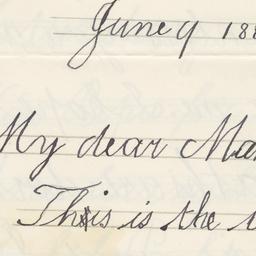 June 9 188
My dear Ma
This is the